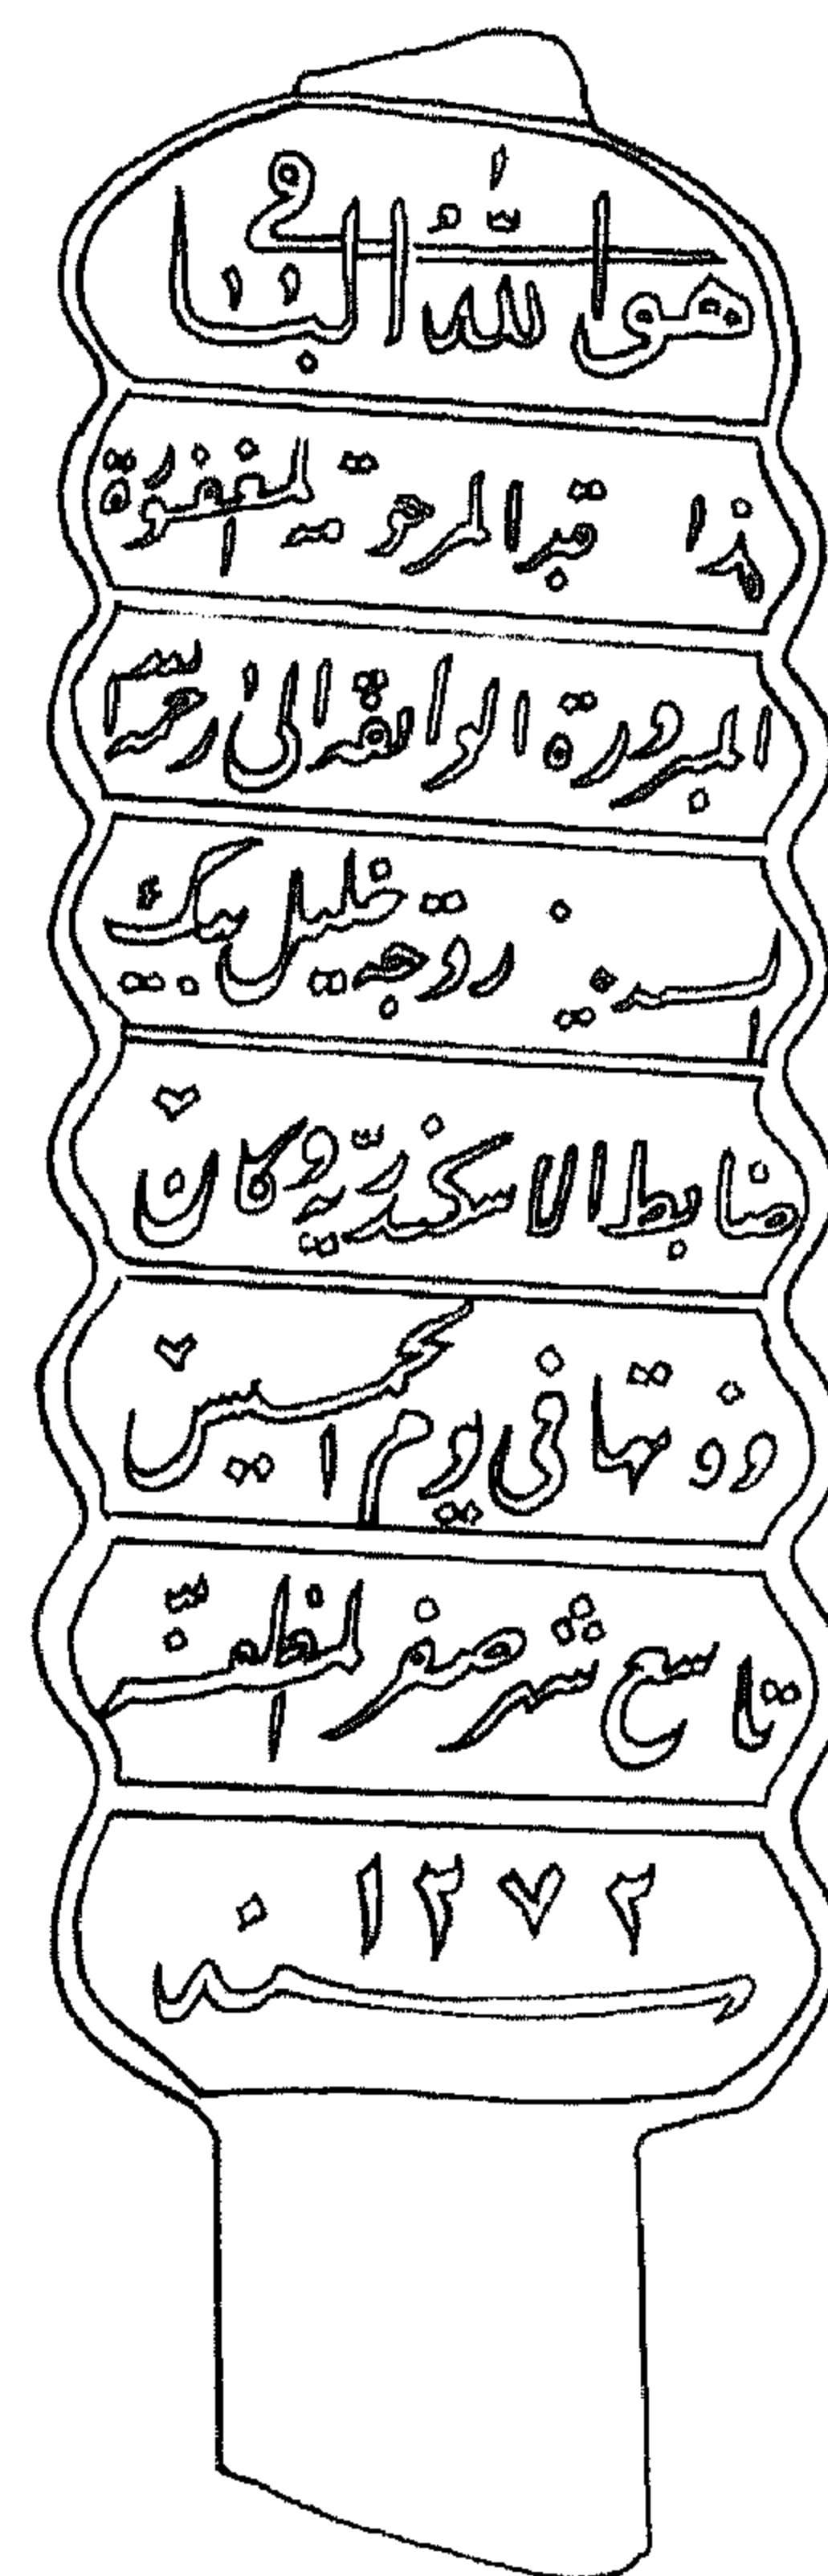 هو الله الباقي
هذا قبر المرحومة المغفورة
المبرورة الواثقه الى رحمة
زوجة خليل بيك
ضابط الاسكندريه وكان
فوتها في يوم الخميس
تاسع شهر صفر المظفر
سنه ١٢٧٢